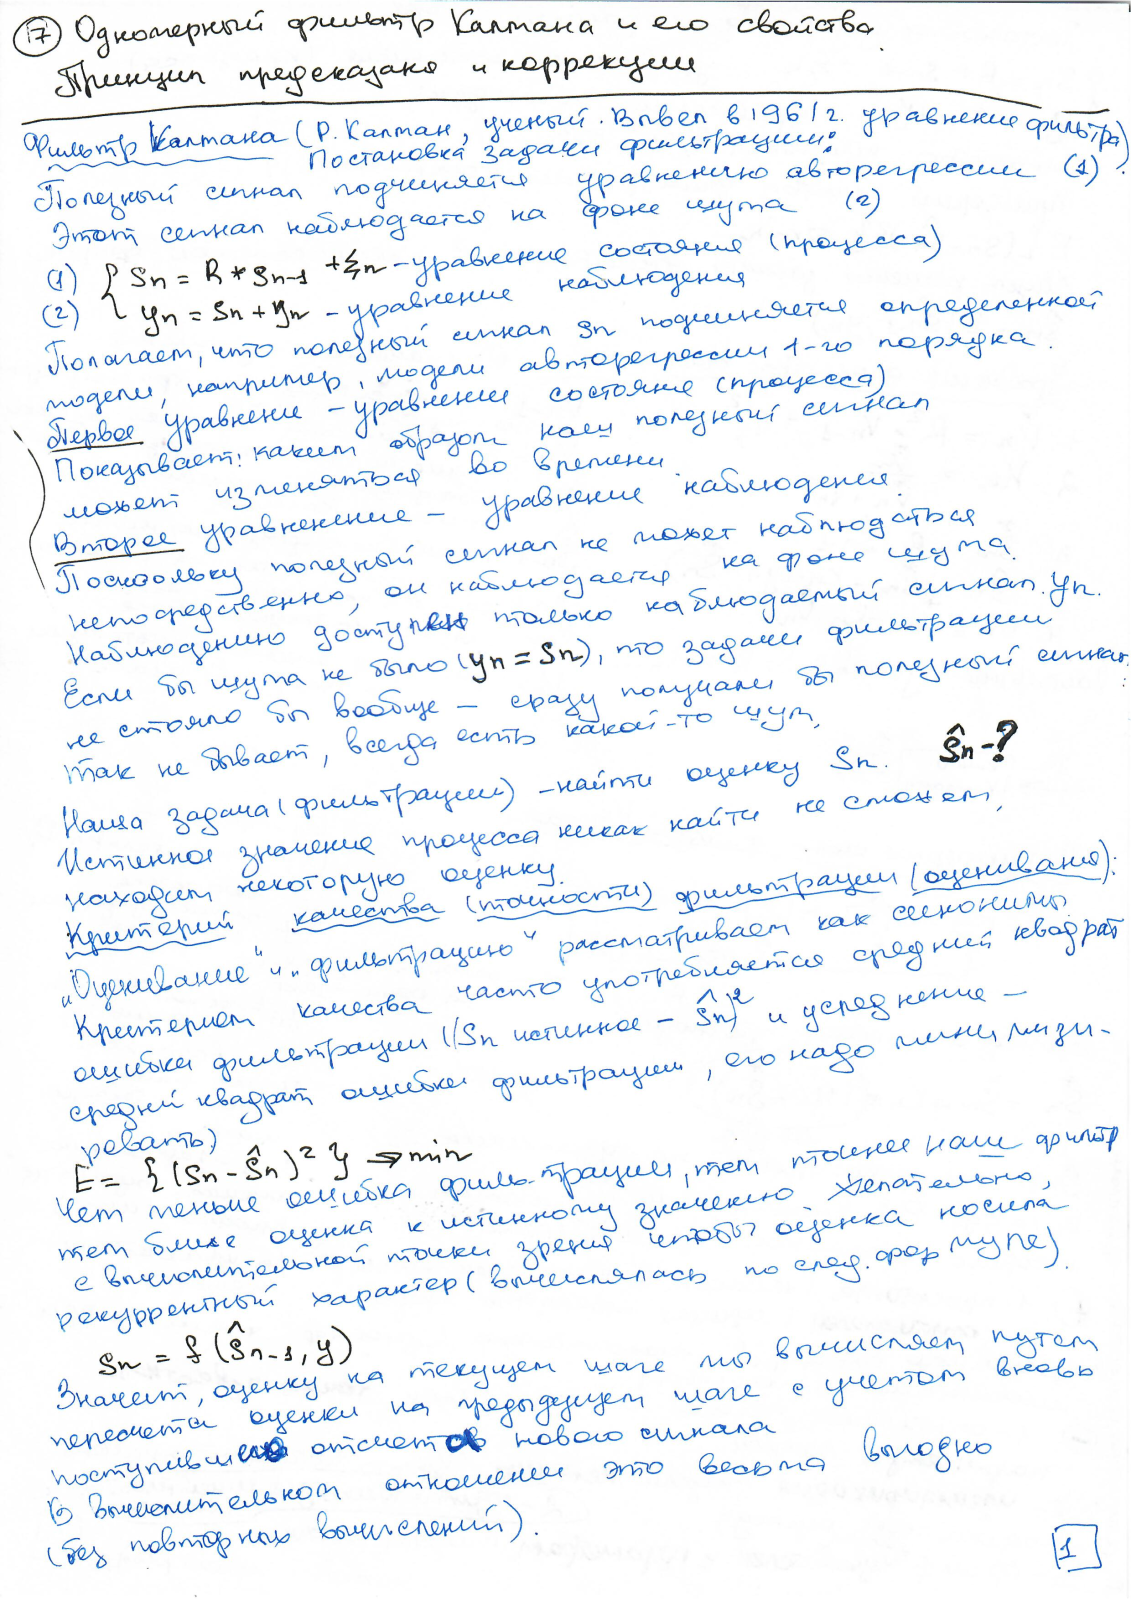 17 Одномерный фильтр Калмана и его свойства.
Принцип предсказаня и коррекции
Фильтр Калмана (Р. Калман, ученый. Вывел в 1961г. уравнение фильтра)
Постановка задачи фильтрации:
Полезный сигнал подчиняется уравнению авторегрессии (1).
Этот сигнал наблюдается на фоне шума (2)
(1) { Sn = R * Sn-1 + ξn - уравнение состояния (процесса)
(2) yn = Sn + ηn - уравнение наблюдения
Полагаем, что полезный сигнал Sn подчиняется определенной
модели, например, модели авторегрессии 1-го порядка.
Первое уравнение - уравнение состояния (процесса)
Показывает: каким образом наш полезный сигнал
может изменяться во времени.
Второе уравненение - уравнение наблюдения.
Поскольку полезный сигнал не может наблюдаться
непосредственно, он наблюдается на фоне шума.
Наблюдению доступен только наблюдаемый сигнал yn.
Если бы шума не было (yn = Sn), то задачи фильтрации
не стояло бы вообще - сразу получали бы полезный сигнал.
Так не бывает, всегда есть какой-то шум.
Наша задача (фильтрации) - найти оценку Sn. Ŝn - ?
Истинное значение процесса никак найти не сможем,
находим некоторую оценку.
Критерий качества (точности) фильтрации (оценивания):
„Оценивание“ и „фильтрацию“ рассматриваем как синонимы
Критерием качества часто употребляется средний квадрат
ошибки фильтрации ((Sn истинное - Ŝn)² и усреднение -
средний квадрат ошибки фильтрации, его надо минимизи-
ровать)
E = {(Sn - Ŝn)²} → min
Чем меньше ошибка фильтрации, тем точнее наш фильтр
тем ближе оценка к истинному значению. Желательно,
с вычислительной точки зрения чтобы оценка носила
рекуррентный характер (вычислялась по след. формуле).
Sn = f (Ŝn-1, y)
Значит, оценку на текущем шаге мы вычисляем путем
пересчета оценки на предыдущем шаге с учетом вновь
поступивших отсчетов нового сигнала
В вычислительном отношении это весьма выгодно
(без повторных вычислений).
1